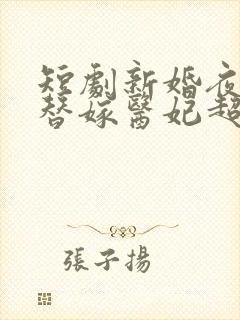 短劇新婚夜
替嫁醫妃超
張子揚